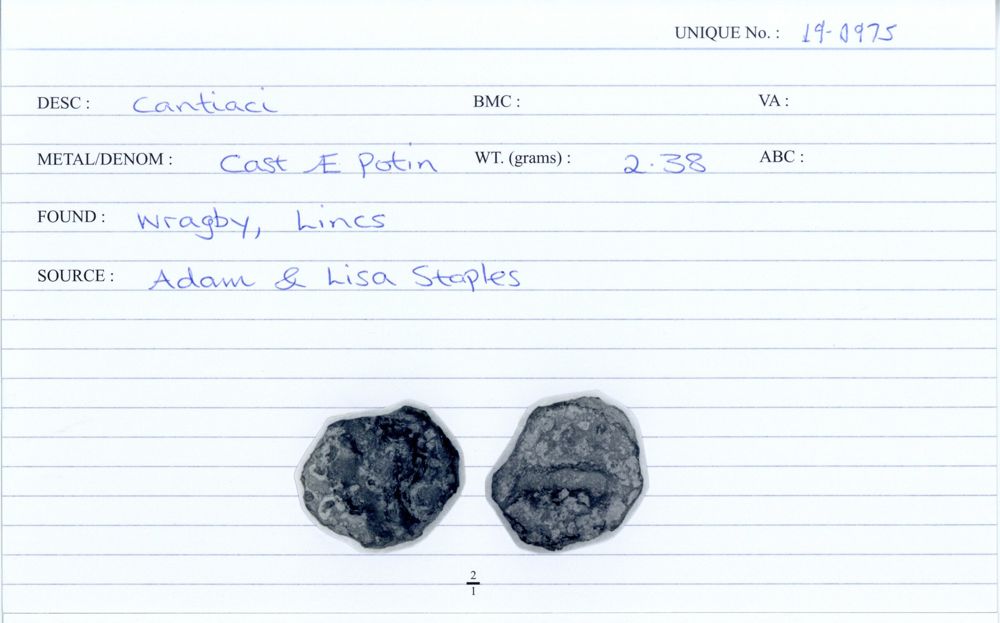 UNIQUE No. : 19-0975
DESC : Cantiaci BMC : VA :
METAL/DENOM : Cast Æ Potin WT. (grams) : 2.38 ABC :
FOUND : Wragby, Lincs
SOURCE : Adam & Lisa Staples
2
1